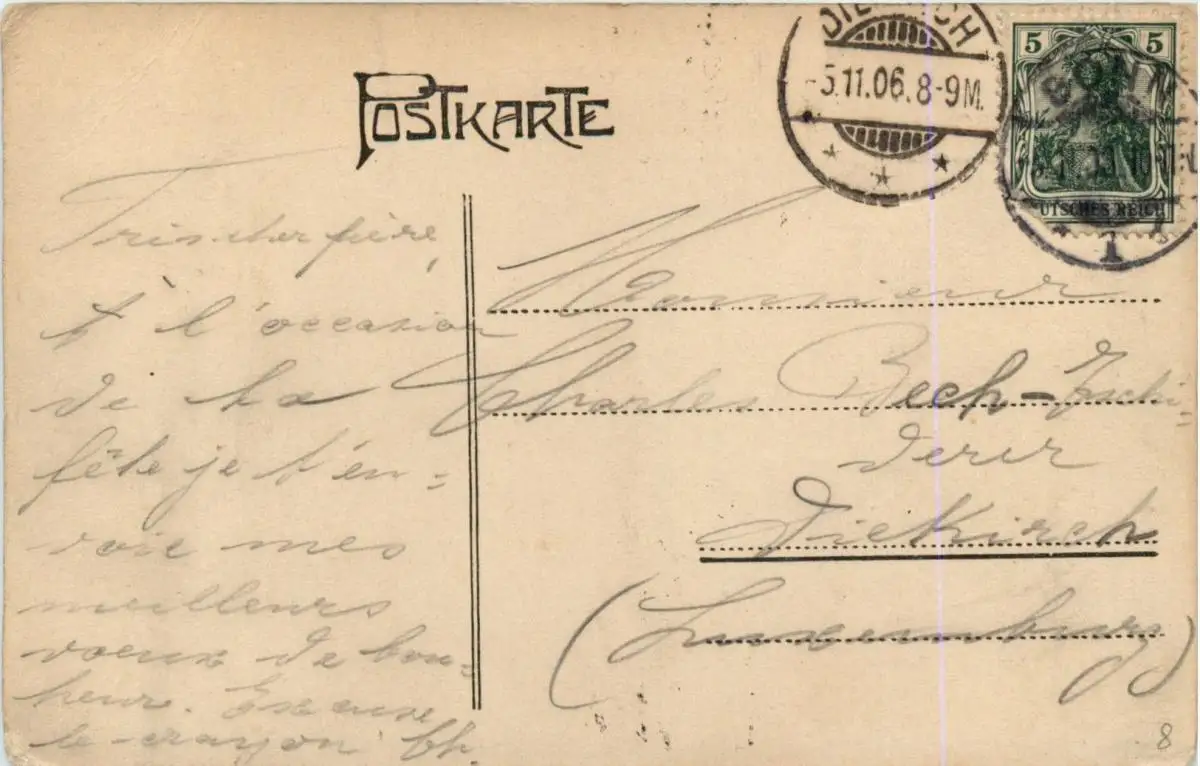 POSTKARTE
DIEKIRCH
-5.11.06.8-9M.
5 5
BONN
DEUTSCHES REICH
1
frère,
A l'occasion
de ta
fête je t'en=
voie mes
meilleurs
voeux de bon=
heur. Excuse
le crayon Ch.
Monsieur
Charles Bech-
derer
Diekirch
(Luxemburg)
8